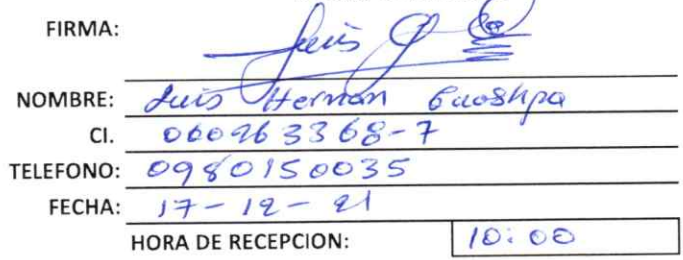 FIRMA: Luis
NOMBRE: Luis Hernán Guashpa
CI. 060263368-7
TELEFONO: 0980150035
FECHA: 17-12-21
HORA DE RECEPCION: 10:00